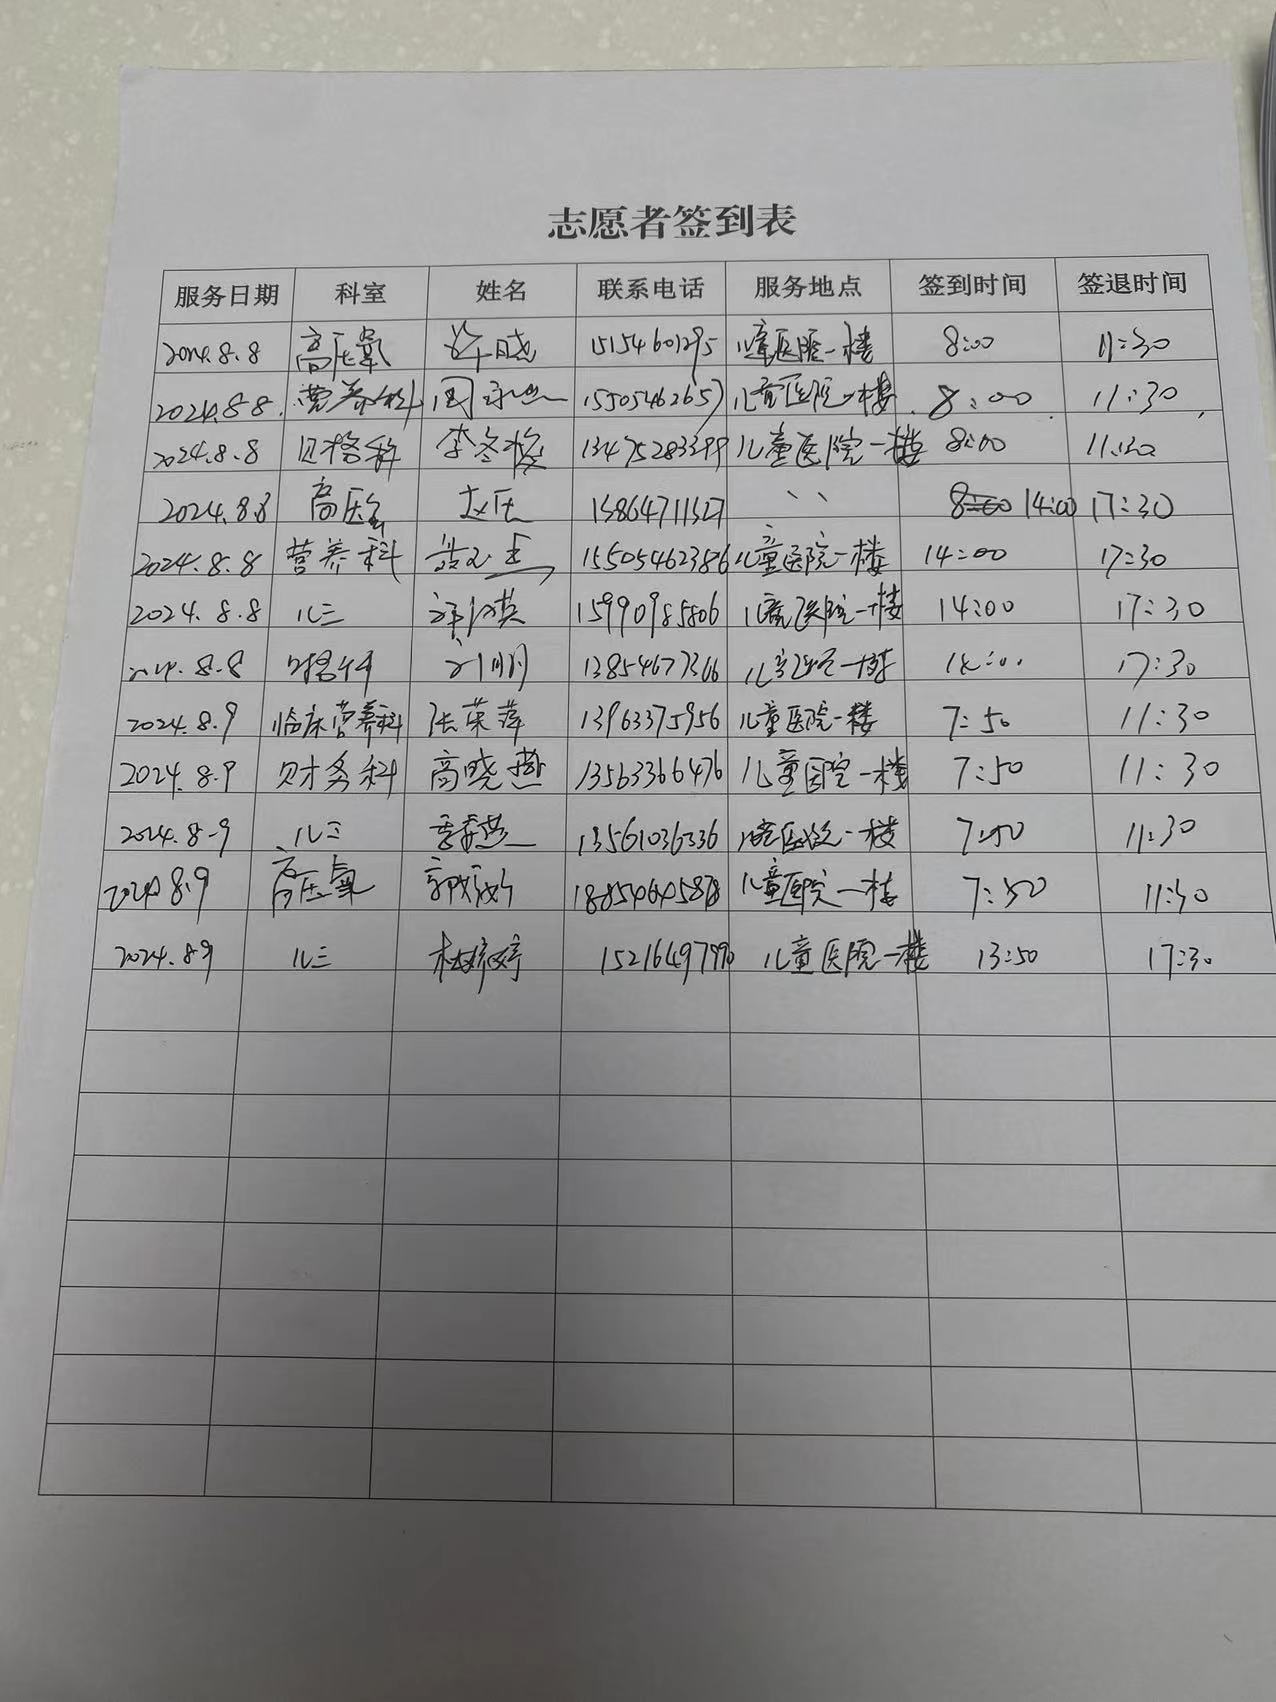 志愿者签到表
服务日期 科室 姓名 联系电话 服务地点 签到时间 签退时间
2024.8.8 高压氧 许晓 15154601295 儿童医院一楼 8:00 11:30
2024.8.8. 营养科 周 1550546265 儿童医院一楼 8:00 11:30
2024.8.8 李冬梅 13475283399 儿童医院一楼 8:00 11:30
2024.8.8 高压氧 赵 13864711327 〃 14:00 17:30
2024.8.8 营养科 15505462386 儿童医院一楼 14:00 17:30
2024.8.8 儿三 15990985806 儿童医院一楼 14:00 17:30
2024.8.8 刘明 13854677366 儿童医院一楼 14:00 17:30
2024.8.9 临床营养科 张荣萍 13963375956 儿童医院一楼 7:50 11:30
2024.8.9 财务科 高晓燕 13563366476 儿童医院一楼 7:50 11:30
2024.8.9 儿三 13561036336 儿童医院一楼 7:50 11:30
2024.8.9 高压氧 郭 18854645878 儿童医院一楼 7:50 11:30
2024.8.9 儿三 杜婷婷 1521649 儿童医院一楼 13:50 17:30